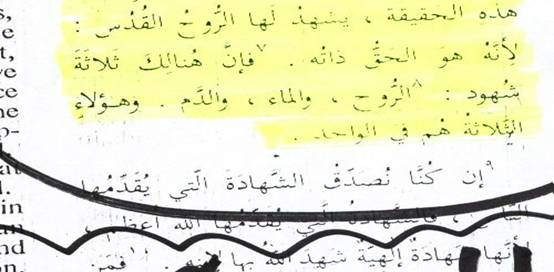 هذه الحقيقة ، يشهدُ لها الرُّوحُ القُدُس :
لأنَّهُ هوَ الحَقُّ ذاتُه . ⁷فإنَّ هُنالِكَ ثلاثَةَ
شُهود : ⁸الرُّوح ، والماء ، والدَّم . وهؤلاءِ
الثَّلاثةُ هُم في الواحد .
⁹إن كُنَّا نُصَدِّقُ الشَّهادَةَ الَّتي يُقَدِّمُها
النَّاس ، فالشَّهادةُ الَّتي يُقَدِّمُها الله أعظم ،
لأنَّها شَهادَةٌ إلهِيَّةٌ شَهِدَ اللهُ بها لابنِه . ¹⁰فمَن